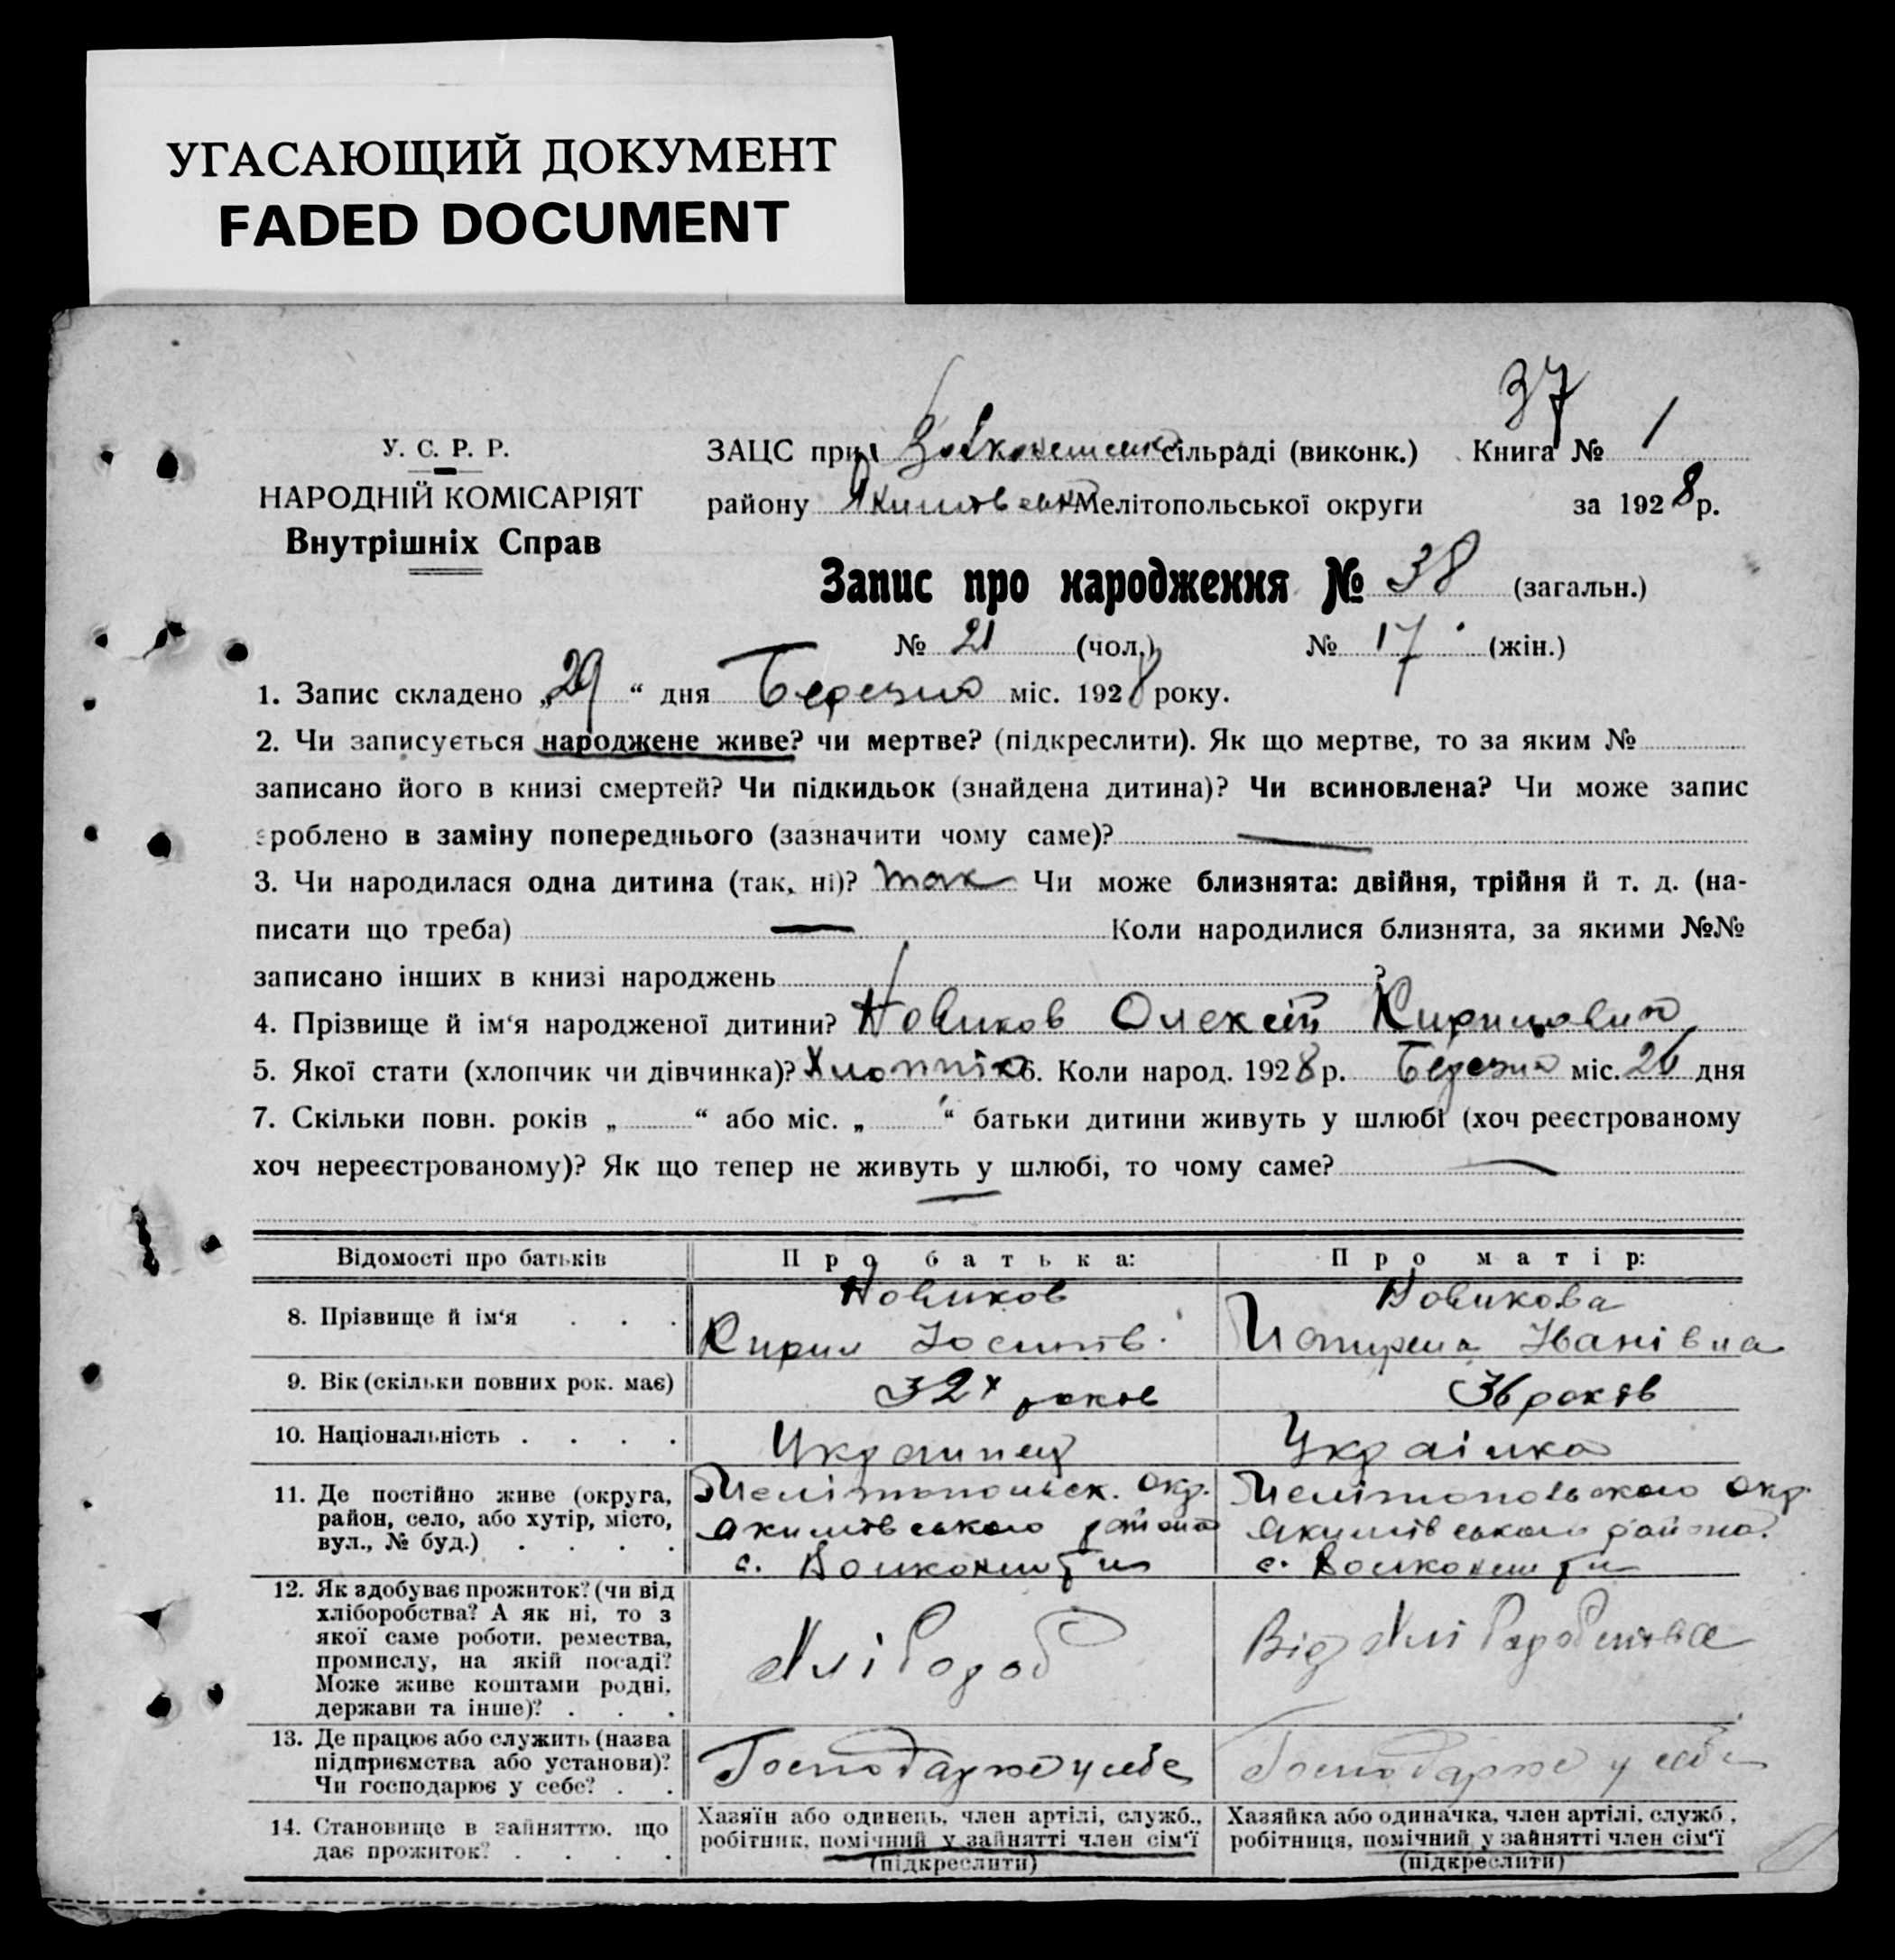 УГАСАЮЩИЙ ДОКУМЕНТ
FADED DOCUMENT
37
У. С. Р. Р.
НАРОДНІЙ КОМІСАРІЯТ
Внутрішніх Справ
ЗАЦС при сільраді (виконк.) Книга № 1
району Якимівськ Мелітопольської округи за 1928 р.
Запис про народження № 38 (загальн.)
№ 21 (чол.) № 17 (жін.)
1. Запис складено „29“ дня Березня міс. 1928 року.
2. Чи записується народжене живе? чи мертве? (підкреслити). Як що мертве, то за яким №
записано його в книзі смертей? Чи підкидьок (знайдена дитина)? Чи всиновлена? Чи може запис
зроблено в заміну попереднього (зазначити чому саме)? —
3. Чи народилася одна дитина (так, ні)? так Чи може близнята: двійня, трійня й т. д. (на-
писати що треба) — Коли народилися близнята, за якими №№
записано інших в книзі народжень ?
4. Прізвище й ім‘я народженої дитини? Новиков Олексій Кирилович
5. Якої стати (хлопчик чи дівчинка)? Хлопчік 6. Коли народ. 1928 р. Березня міс. 26 дня
7. Скільки повн. років „ “ або міс. „ “ батьки дитини живуть у шлюбі (хоч реєстрованому
хоч нереєстрованому)? Як що тепер не живуть у шлюбі, то чому саме? —
Відомості про батьків Про батька: Про матір:
8. Прізвище й ім‘я . . . Новиков Кирил Йосипів. Новикова Іванівна
9. Вік (скільки повних рок. має) 32х років 36 років
10. Національність . . . . Украинец Українка
11. Де постійно живе (округа,
район, село, або хутір, місто,
вул., № буд.) . . . .
Мелітопольск. Окр.
Якимівського района
с.
Мелітопольского Окр.
Якимівського района.
с.
12. Як здобуває прожиток? (чи від
хліборобства? А як ні, то з
якої саме роботи, ремества,
промислу, на якій посаді?
Може живе коштами родні,
держави та інше)? . . .
Хлібороб
Від Хліборобства
13. Де працює або служить (назва
підприємства або установи)?
Чи господарює у себе? . .
Господарює у себе
Господарює у себе
14. Становище в зайняттю, що
дає прожиток? . . . .
Хазяїн або одинець, член артілі, служб.,
робітник, помічний у зайнятті член сім‘ї
(підкреслити)
Хазяйка або одиначка, член артілі, служб.,
робітниця, помічний у зайнятті член сім‘ї
(підкреслити)